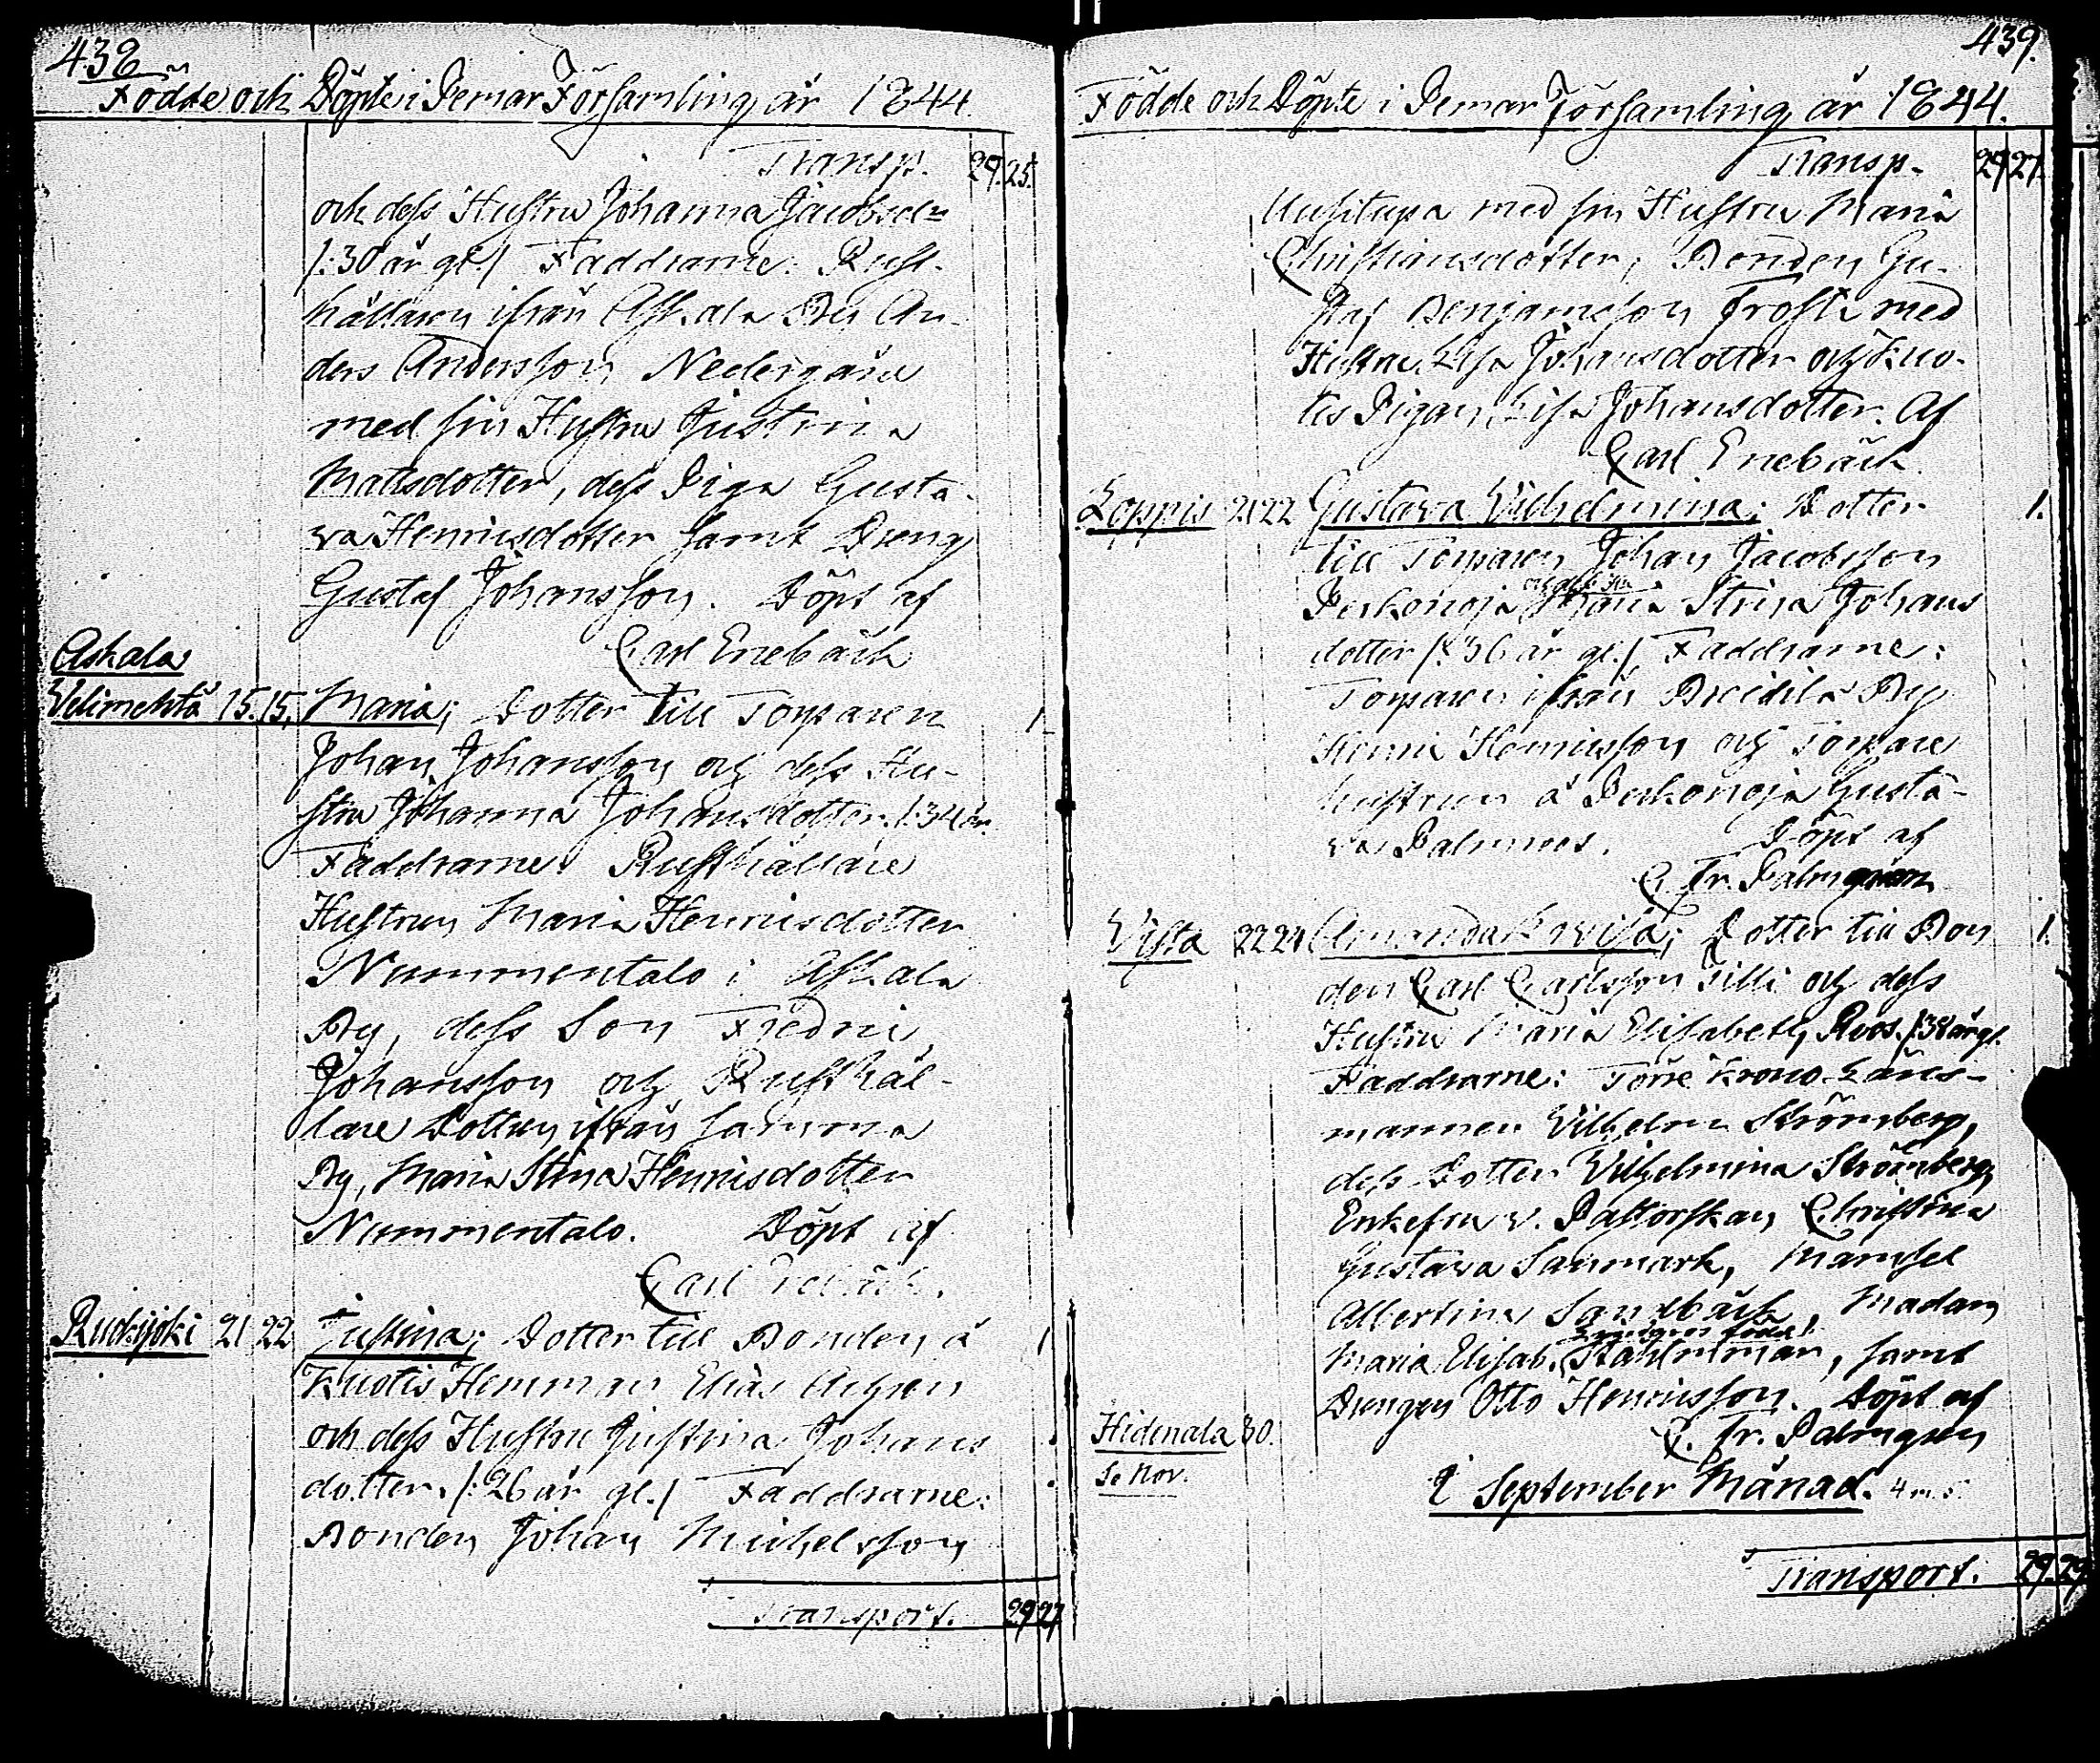 438
Födde och Döpte i Pemar Församling år 1844.
Transp. 29. 25.
och dess Hustru Johanna Jacobsd:r
/: 30 år gl./ Faddrarne: Rust-
hållaren ifrån Askala By An-
ders Andersson Nedergård
med sin Hustru Justina
Mattsdotter, dess Piga Gusta-
va Henricsdotter samt Dreng
Gustaf Johansson. Döpt af
Carl Enebäck
Askala
Velimehtä 15. 15. Maria; Dotter till Torparen 1.
Johan Johansson och dess Hu-
stru Johanna Johansdotter. /: 34 år.
Faddrarne: Rusthållare
Hustrun Maria Henricsdotter
Nummentalo i Askala
By, dess Son Fredric
Johansson och Rusthål-
lare Dottren ifrån samma
By, Maria Stina Henricsdotter
Nummentalo. Döpt af
Carl Enebäck.
Rukijoki 21 22 Justina; Dotter till Bonden å 1
Kuotis Hemman Elias
och dess Hustru Justina Johans
dotter. /: 26 år gl./ Faddrarne:
Bonden Johan Michelsson
Transport. 29 27
439.
Födde och Döpte i Pemar Församling år 1844.
Transp. 29 27.
Uusitupa med sin Hustru Maria
Christiansdotter; Bonden Gu-
staf Benjamsson Frost med
Hustru Lisa Johansdotter och Kuo-
tis Pigan Lisa Johansdotter. Af
Carl Enebäck.
Loppis 21 22 Gustava Vilhelmina; Dotter 1.
till Torparen Johan Jacobsson
Perkonoja och dess Hu Maria Stina Johans
dotter /: 36 år gl./ Faddrarne:
Torparen ifrån Bredila By
Henric Henricsson och Torpare
hustrun å Perkonoja Gusta-
va Palmroos. Döpt af
C. Fr. Palmgren
Vista 22 24 Amanda Lovisa; Dotter till Bon 1.
den Carl Carlsson Tilli och dess
Hustru Maria Elisabeth Roos. /: 38 år gl.
Faddrarne: Förre Krono-Läns-
mannen Vilhelm Strömberg,
dess Dotter Vilhelmina Strömberg,
Enkefru v. Pastorskan Christina
Gustava Sanmark, Mamsel
Albertina Sandbäck, Madam
Maria Elisab. född Ståhlman, samt
Drengen Otto Henricsson. Döpt af
C. Fr. Palmgren
Hidenala 30.
Se Nov.
I September Månad. 4 m. 5.
Transport. 29. 29